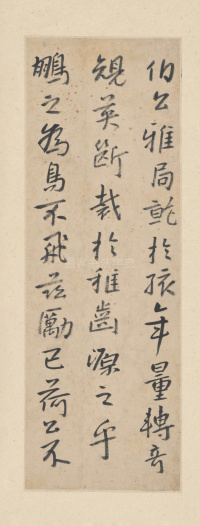 伯公雅局乾於孩年量轉奇
規英斷裁於稚齒源之乎
鵬之為鳥不飛茲勵已荷公不